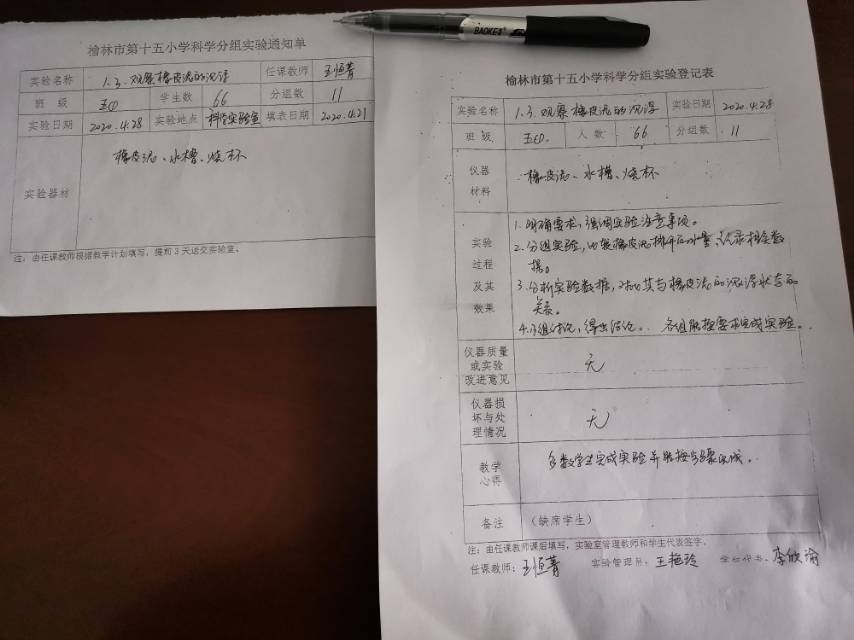 榆林市第十五小学科学分组实验通知单
实验名称 1.3.观察橡皮泥的沉浮 任课教师 王恒菁
班 级 五四 学生数 66 分组数 11
实验日期 2020.4.28 实验地点 科学实验室 填表日期 2020.4.21
实验器材 橡皮泥、水槽、烧杯
注：由任课教师根据教学计划填写，提前3天送交实验室。
BAOKE
榆林市第十五小学科学分组实验登记表
实验名称 1.3.观察橡皮泥的沉浮 实验日期 2020.4.28
班 级 五四. 人 数 66 分组数 11
仪器材料 橡皮泥、水槽、烧杯
实验过程及其效果
1.明确要求，强调实验注意事项。
2.分组实验，观察橡皮泥排开的水量，记录相关数
据。
3.分析实验数据，讨论其与橡皮泥的沉浮状态的
关系。
4.小组讨论，得出结论。各组能按要求完成实验。
仪器质量或实验改进意见 无
仪器损坏与处理情况 无
教学心得 多数学生完成实验并能按步骤完成。
备注 （缺席学生）
注：由任课教师课后填写，实验室管理教师和学生代表签字。
任课教师：王恒菁 实验管理员：王艳玲 学生代表：李欣渝